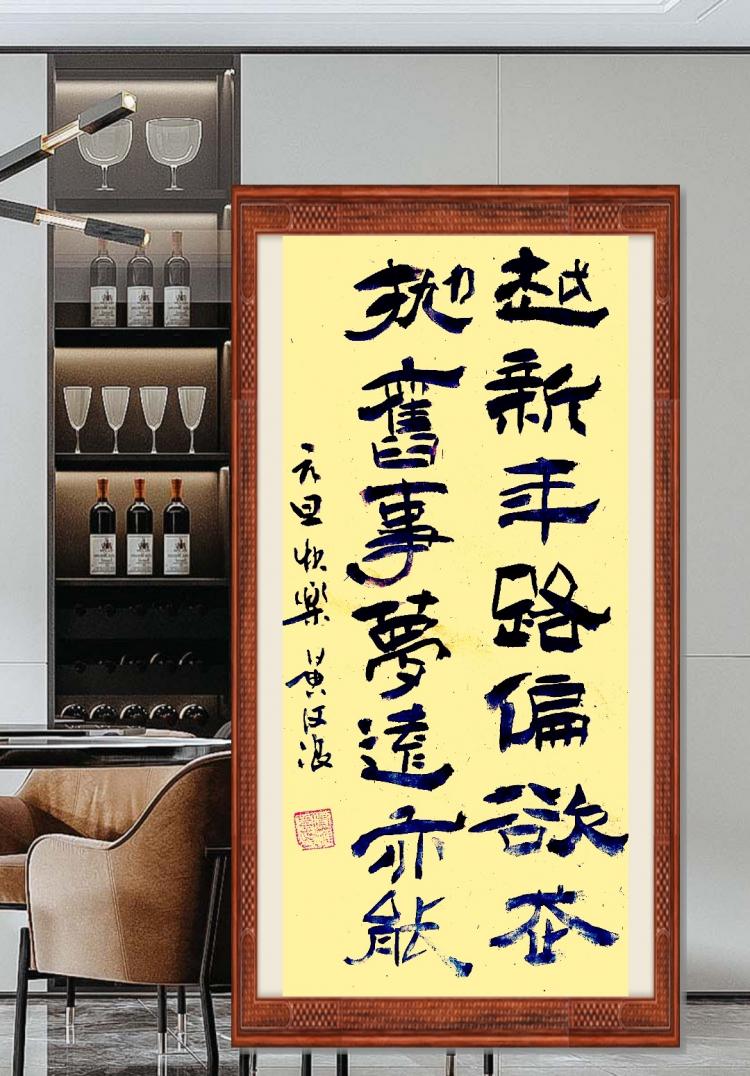 越新年路偏欲
抛舊事夢遠亦能
元旦快樂 黄汉